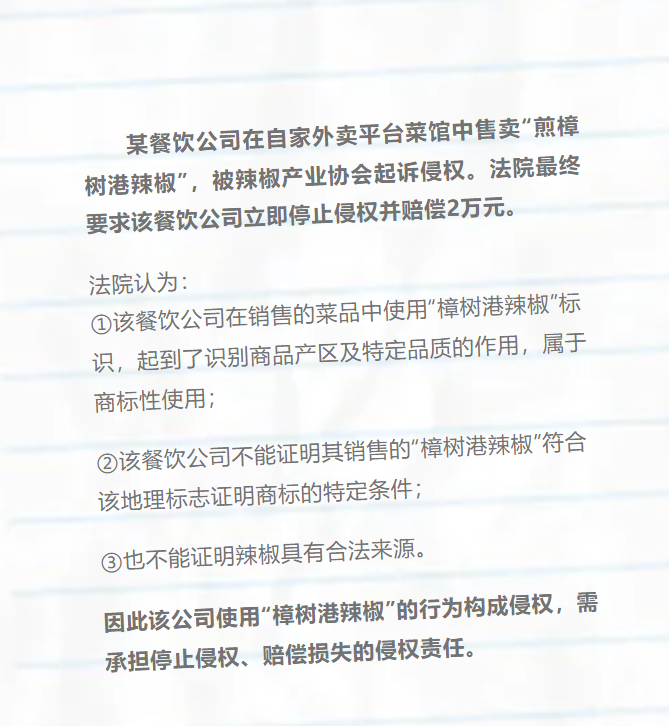 某餐饮公司在自家外卖平台菜馆中售卖“煎樟
树港辣椒”，被辣椒产业协会起诉侵权。法院最终
要求该餐饮公司立即停止侵权并赔偿2万元。
法院认为：
①该餐饮公司在销售的菜品中使用“樟树港辣椒”标
识，起到了识别商品产区及特定品质的作用，属于
商标性使用；
②该餐饮公司不能证明其销售的“樟树港辣椒”符合
该地理标志证明商标的特定条件；
③也不能证明辣椒具有合法来源。
因此该公司使用“樟树港辣椒”的行为构成侵权，需
承担停止侵权、赔偿损失的侵权责任。